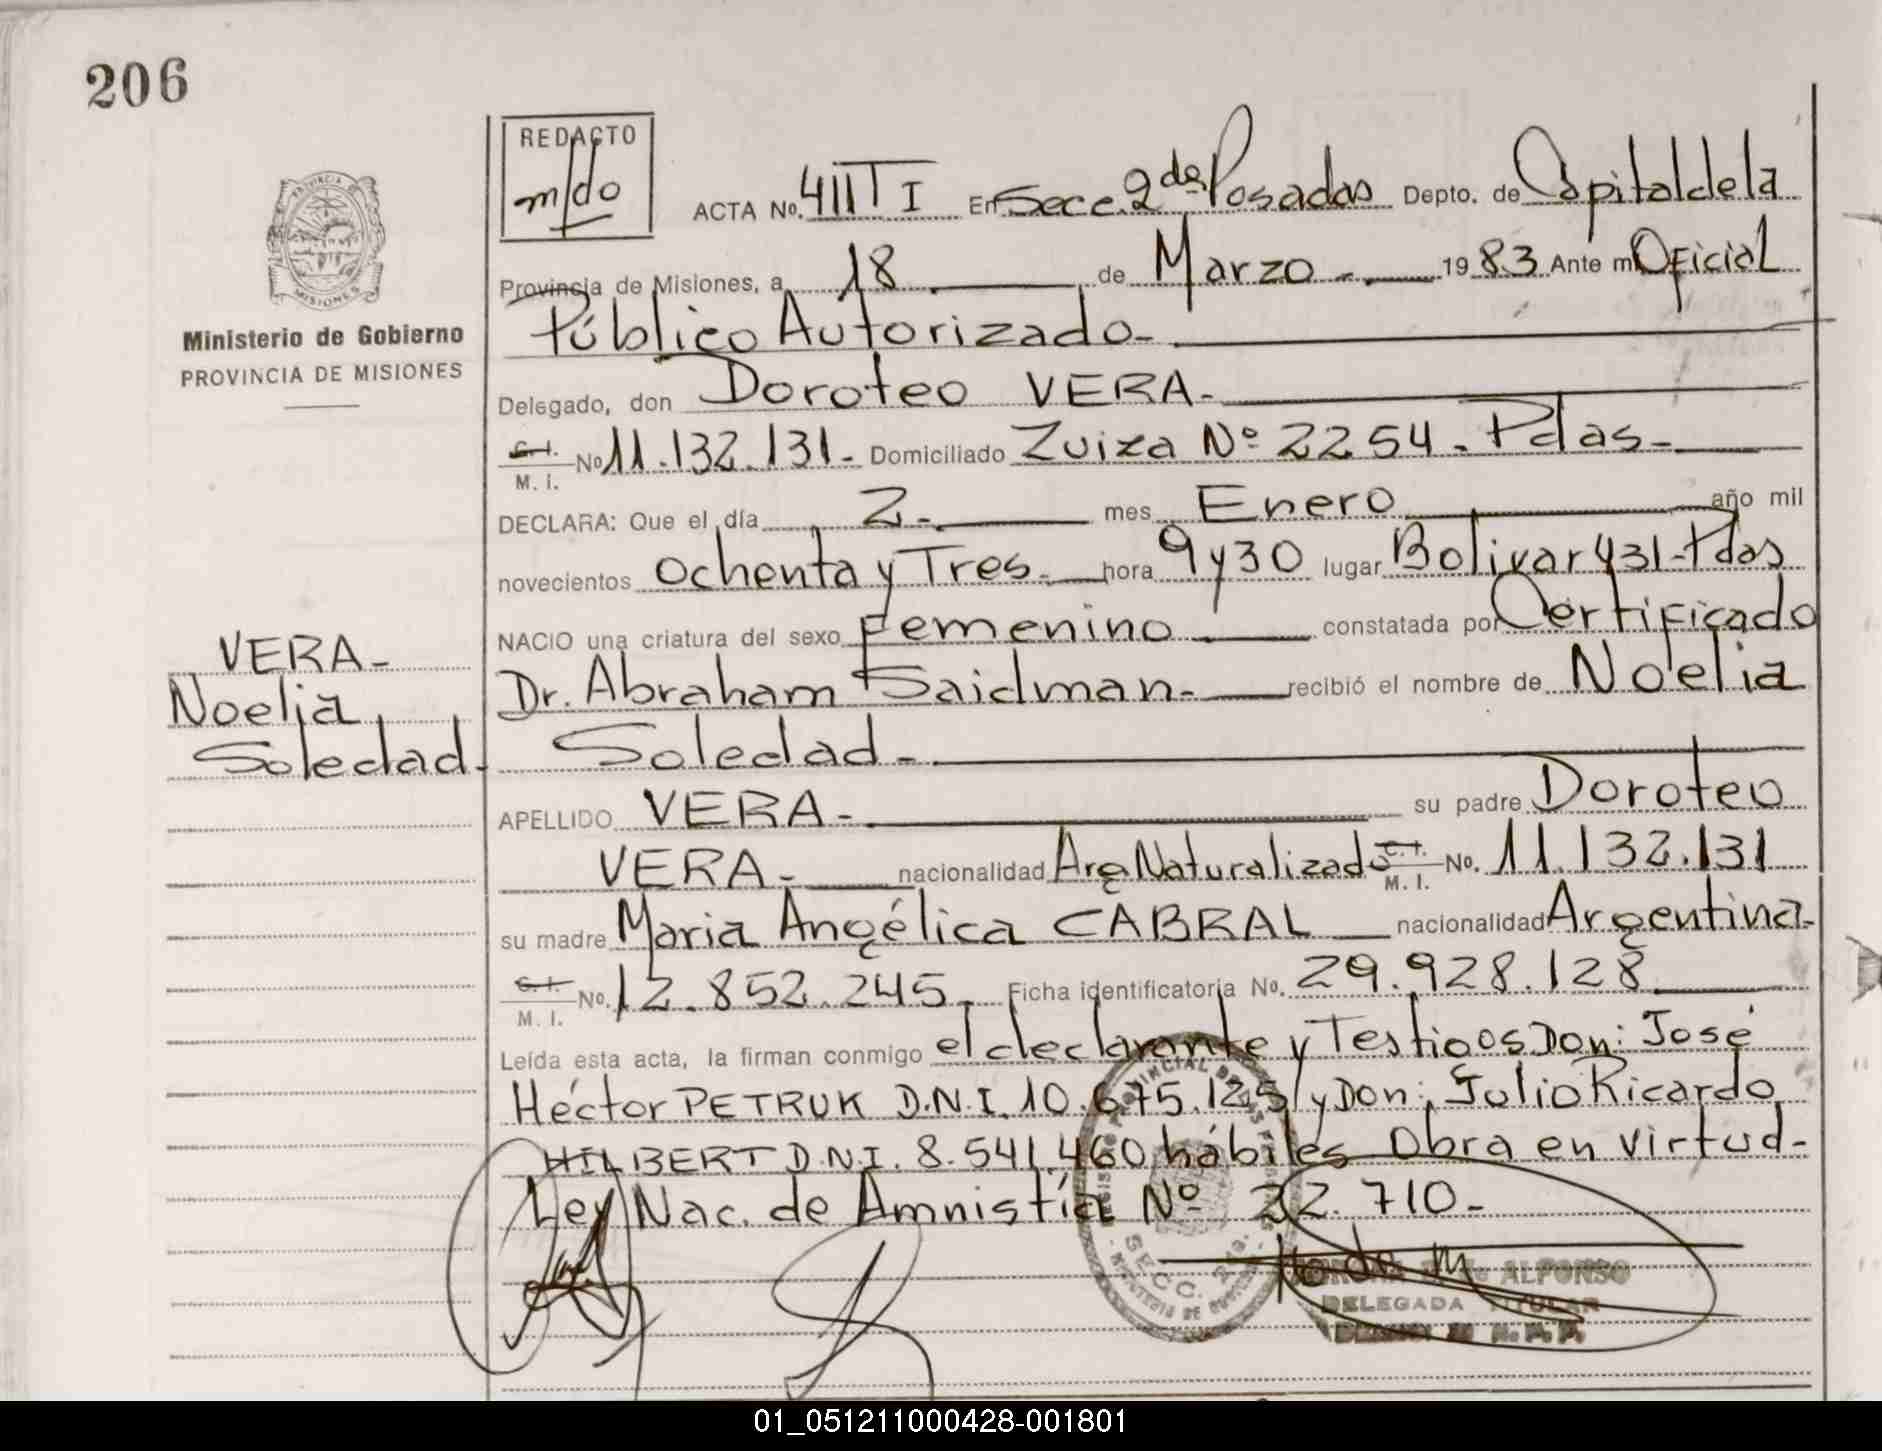 206
REDACTO
m/do
ACTA No. 411 T I En Secc. 2da Posadas Depto. de Capital de la
Provincia de Misiones, a 18 de Marzo - 1983 Ante mi Oficial
Público Autorizado -
Ministerio de Gobierno
PROVINCIA DE MISIONES
Delegado, don Doroteo VERA -
C. I.
M. I. No 11.132.131 - Domiciliado Zuiza Nº 2254 - Pdas -
DECLARA: Que el día 2 - mes Enero año mil
novecientos ochenta y Tres - hora 9 y 30 lugar Bolivar 431 - Pdas
NACIO una criatura del sexo Femenino - constatada por Certificado
VERA -
Noelia
Soledad -
Dr. Abraham Saidman - recibió el nombre de Noelia
Soledad -
APELLIDO VERA - su padre Doroteo
VERA - nacionalidad Arg Naturalizado C. I. M. I. No. 11.132.131
su madre Maria Angélica CABRAL nacionalidad Argentina -
C. I.
M. I. No. 12.852.245 - Ficha identificatoria No. 29.928.128
Leída esta acta, la firman conmigo el declarante y Testigos Don: José
Héctor PETRUK D.N.I. 10.675.125 y Don: Julio Ricardo
HILBERT D.N.I. 8.541.460 hábiles Obra en virtud -
Ley Nac. de Amnistía Nº 22.710 -
ALFONSO
DELEGADA TITULAR
SECC. 2da.
01_051211000428-001801